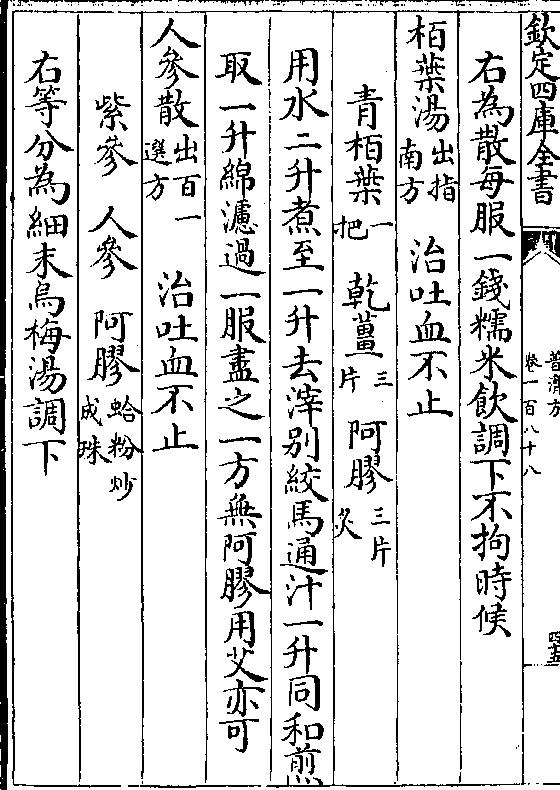 欽定四庫全書
普濟方
卷一百八十八
右為散每服一錢糯米飲調下不拘時候
栢葉湯出指南方 治吐血不止
青栢葉一把 乾薑三片 阿膠三片炙
用水二升煮至一升去滓别絞馬通汁一升同和煎
取一升綿濾過一服盡之一方無阿膠用艾亦可
人參散出百一選方 治吐血不止
紫參 人參 阿膠蛤粉炒成珠
右等分為細末烏梅湯調下